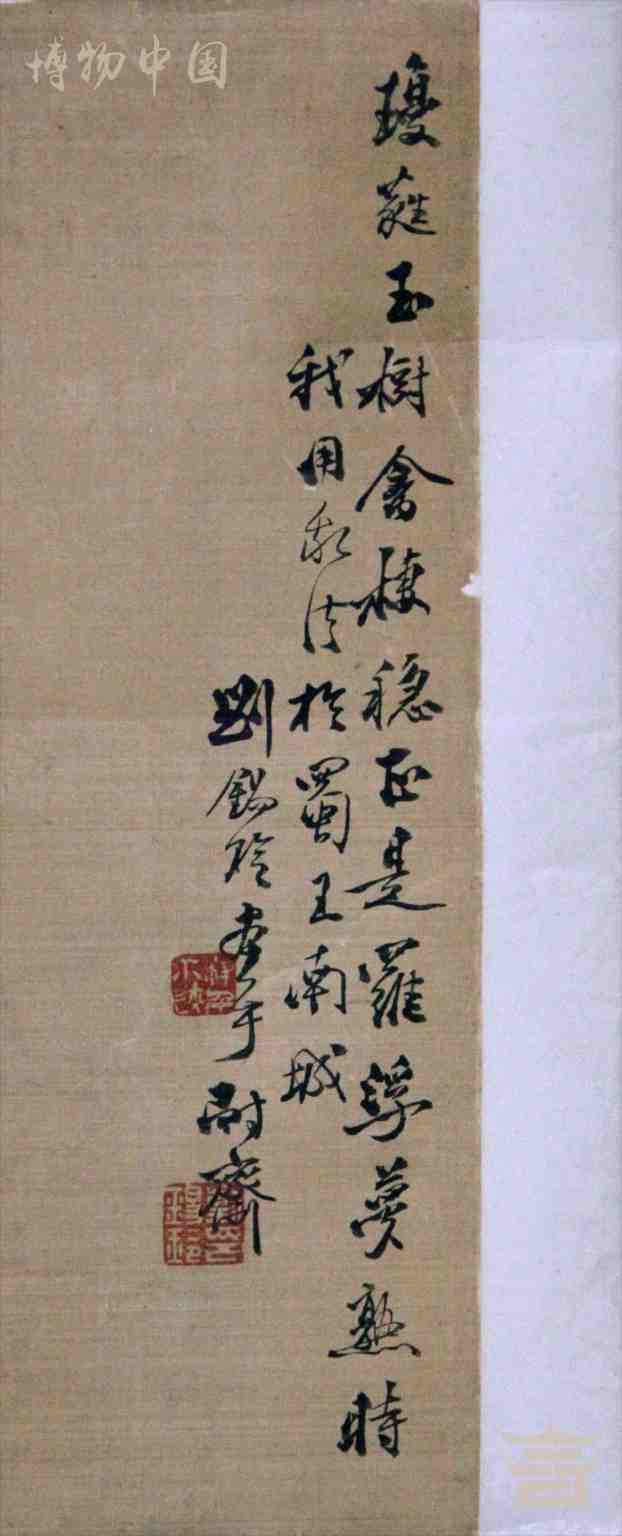 博物中国
瓊蕤玉樹禽棲穩正是羅浮夢熟時
我用我法於蜀王南城
劉錫玲畫于耐齋